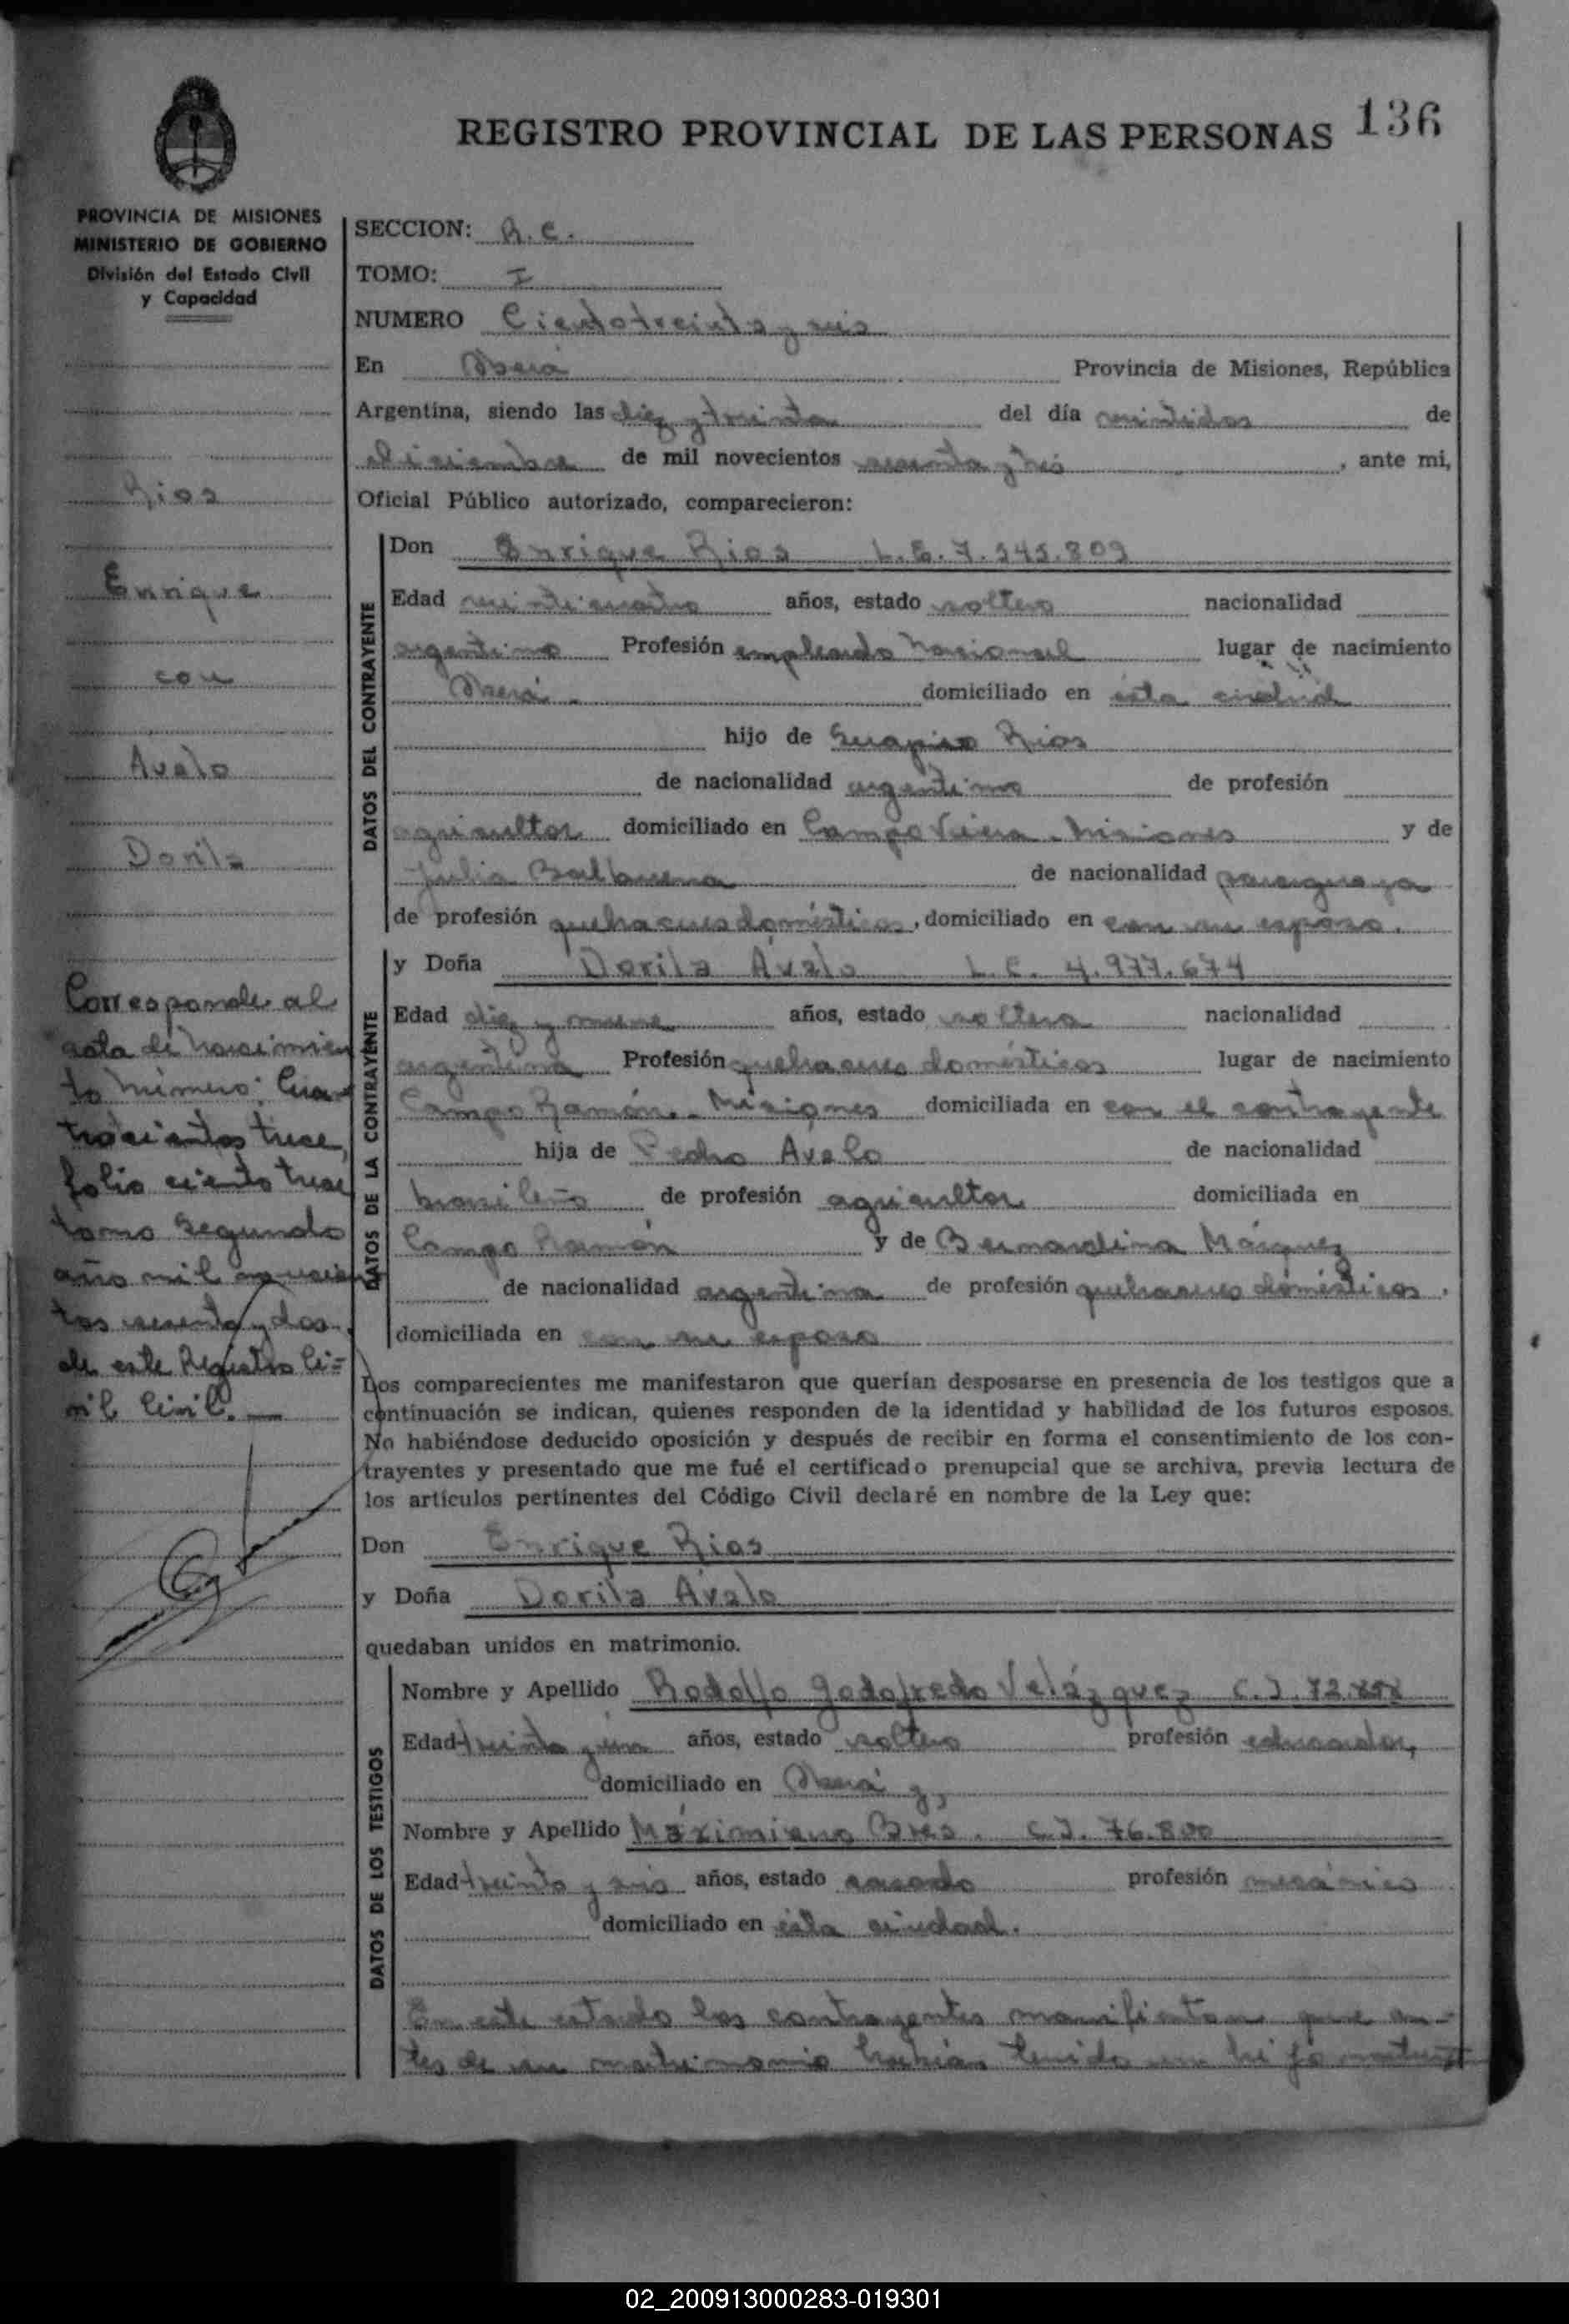 REGISTRO PROVINCIAL DE LAS PERSONAS 136
PROVINCIA DE MISIONES
MINISTERIO DE GOBIERNO
División del Estado Civil
y Capacidad
Rios
Enrique
con
Avalo
Dorila
Corresponde al
acta de nacimien
to número: Cua-
trocientos trece,
folio ciento trece
tomo segundo
año mil novecien
tos sesenta y dos
de este Registro Ci=
vil Civil.
SECCION: R.C.
TOMO: I
NUMERO Cientotreinta y seis
En Oberá Provincia de Misiones, República
Argentina, siendo las diez y treinta del día veintidos de
diciembre de mil novecientos sesenta y tres, ante mi,
Oficial Público autorizado, comparecieron:
DATOS DEL CONTRAYENTE
Don Enrique Rios L.E. 7.545.809
Edad veinticuatro años, estado soltero nacionalidad
argentino Profesión empleado nacional lugar de nacimiento
Oberá. domiciliado en esta ciudad
hijo de Serapio Rios
de nacionalidad argentino de profesión
agricultor domiciliado en Campo Viera - Misiones y de
Julia Balbuena de nacionalidad paraguaya
de profesión quehaceres domésticos, domiciliado en con su esposo.
DATOS DE LA CONTRAYENTE
y Doña Dorila Avalo L.C. 4.977.674
Edad diez y nueve años, estado soltera nacionalidad
argentina Profesión quehaceres domésticos lugar de nacimiento
Campo Ramón. Misiones domiciliada en con el contrayente
hija de Pedro Avalo de nacionalidad
brasileño de profesión agricultor domiciliada en
Campo Ramón y de Bernardina Márquez
de nacionalidad argentina de profesión quehaceres domésticos.
domiciliada en con su esposo
Los comparecientes me manifestaron que querían desposarse en presencia de los testigos que a
continuación se indican, quienes responden de la identidad y habilidad de los futuros esposos.
No habiéndose deducido oposición y después de recibir en forma el consentimiento de los con-
trayentes y presentado que me fué el certificado prenupcial que se archiva, previa lectura de
los artículos pertinentes del Código Civil declaré en nombre de la Ley que:
Don Enrique Rios
y Doña Dorila Avalo
quedaban unidos en matrimonio.
DATOS DE LOS TESTIGOS
Nombre y Apellido Rodolfo Godofredo Velázquez C.I.
Edad treinta y un años, estado soltero profesión educador,
domiciliado en Oberá y,
Nombre y Apellido Máximiano C.I. 76.800
Edad treinta y seis años, estado casado profesión mecánico
domiciliado en esta ciudad.
En este estado los contrayentes manifiestan que an-
tes de su matrimonio habían tenido un hijo
02_200913000283-019301